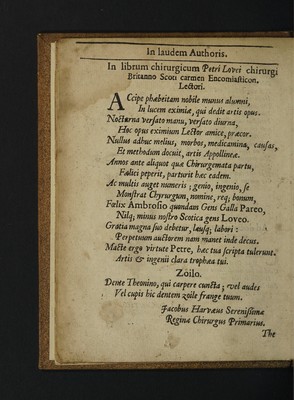 In laudem Authoris.
In librum chirurgicum Petri Lovei chirurgi
Britanno Scoti carmen Encomiasticon.
Lectori.
ACcipe phœbeitam nobile munus alumni,
In lucem eximiæ, qui dedit artis opus.
Nocturna versato manu, versato diurna,
Hoc opus eximium Lector amice, præcor.
Nullus adhuc melius, morbos, medicamina, causas,
Et methodum docuit, artis Appollineæ.
Annos ante aliquot quæ Chirurgemata partu,
Fælici peperit, parturit hæc eadem.
Ac multis auget numeris; genio, ingenio, se
Monstrat Chyrurgum, nomine, req; bonum,
Fælix Ambrosio quondam Gens Galla Pareo,
Nilq; minus nostro Scotica gens Loveo.
Gratia magna suo debetur, lausq; labori:
Perpetuum auctorem nam manet inde decus.
Macte ergo virtute Petre, hæc tua scripta tulerunt.
Artis & ingenii clara trophæa tui.
Zoilo.
Dente Theonino, qui carpere cuncta; vel audes
Vel cupis hic dentem zoile frange tuum.
Jacobus Harvæus Serenissimæ
Reginæ Chirurgus Primarius.
The